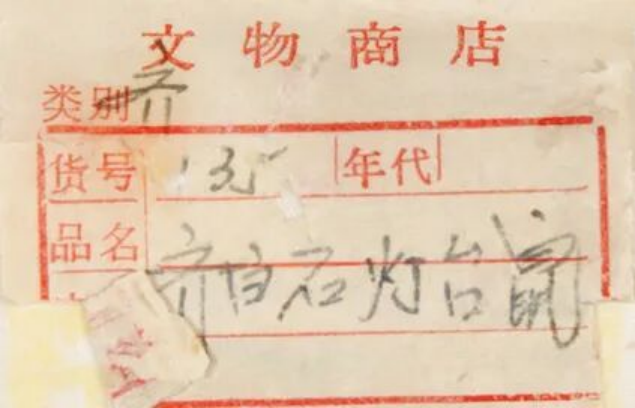 文物商店
类别 齐
货号 135 年代
品名 齐白石灯台鼠